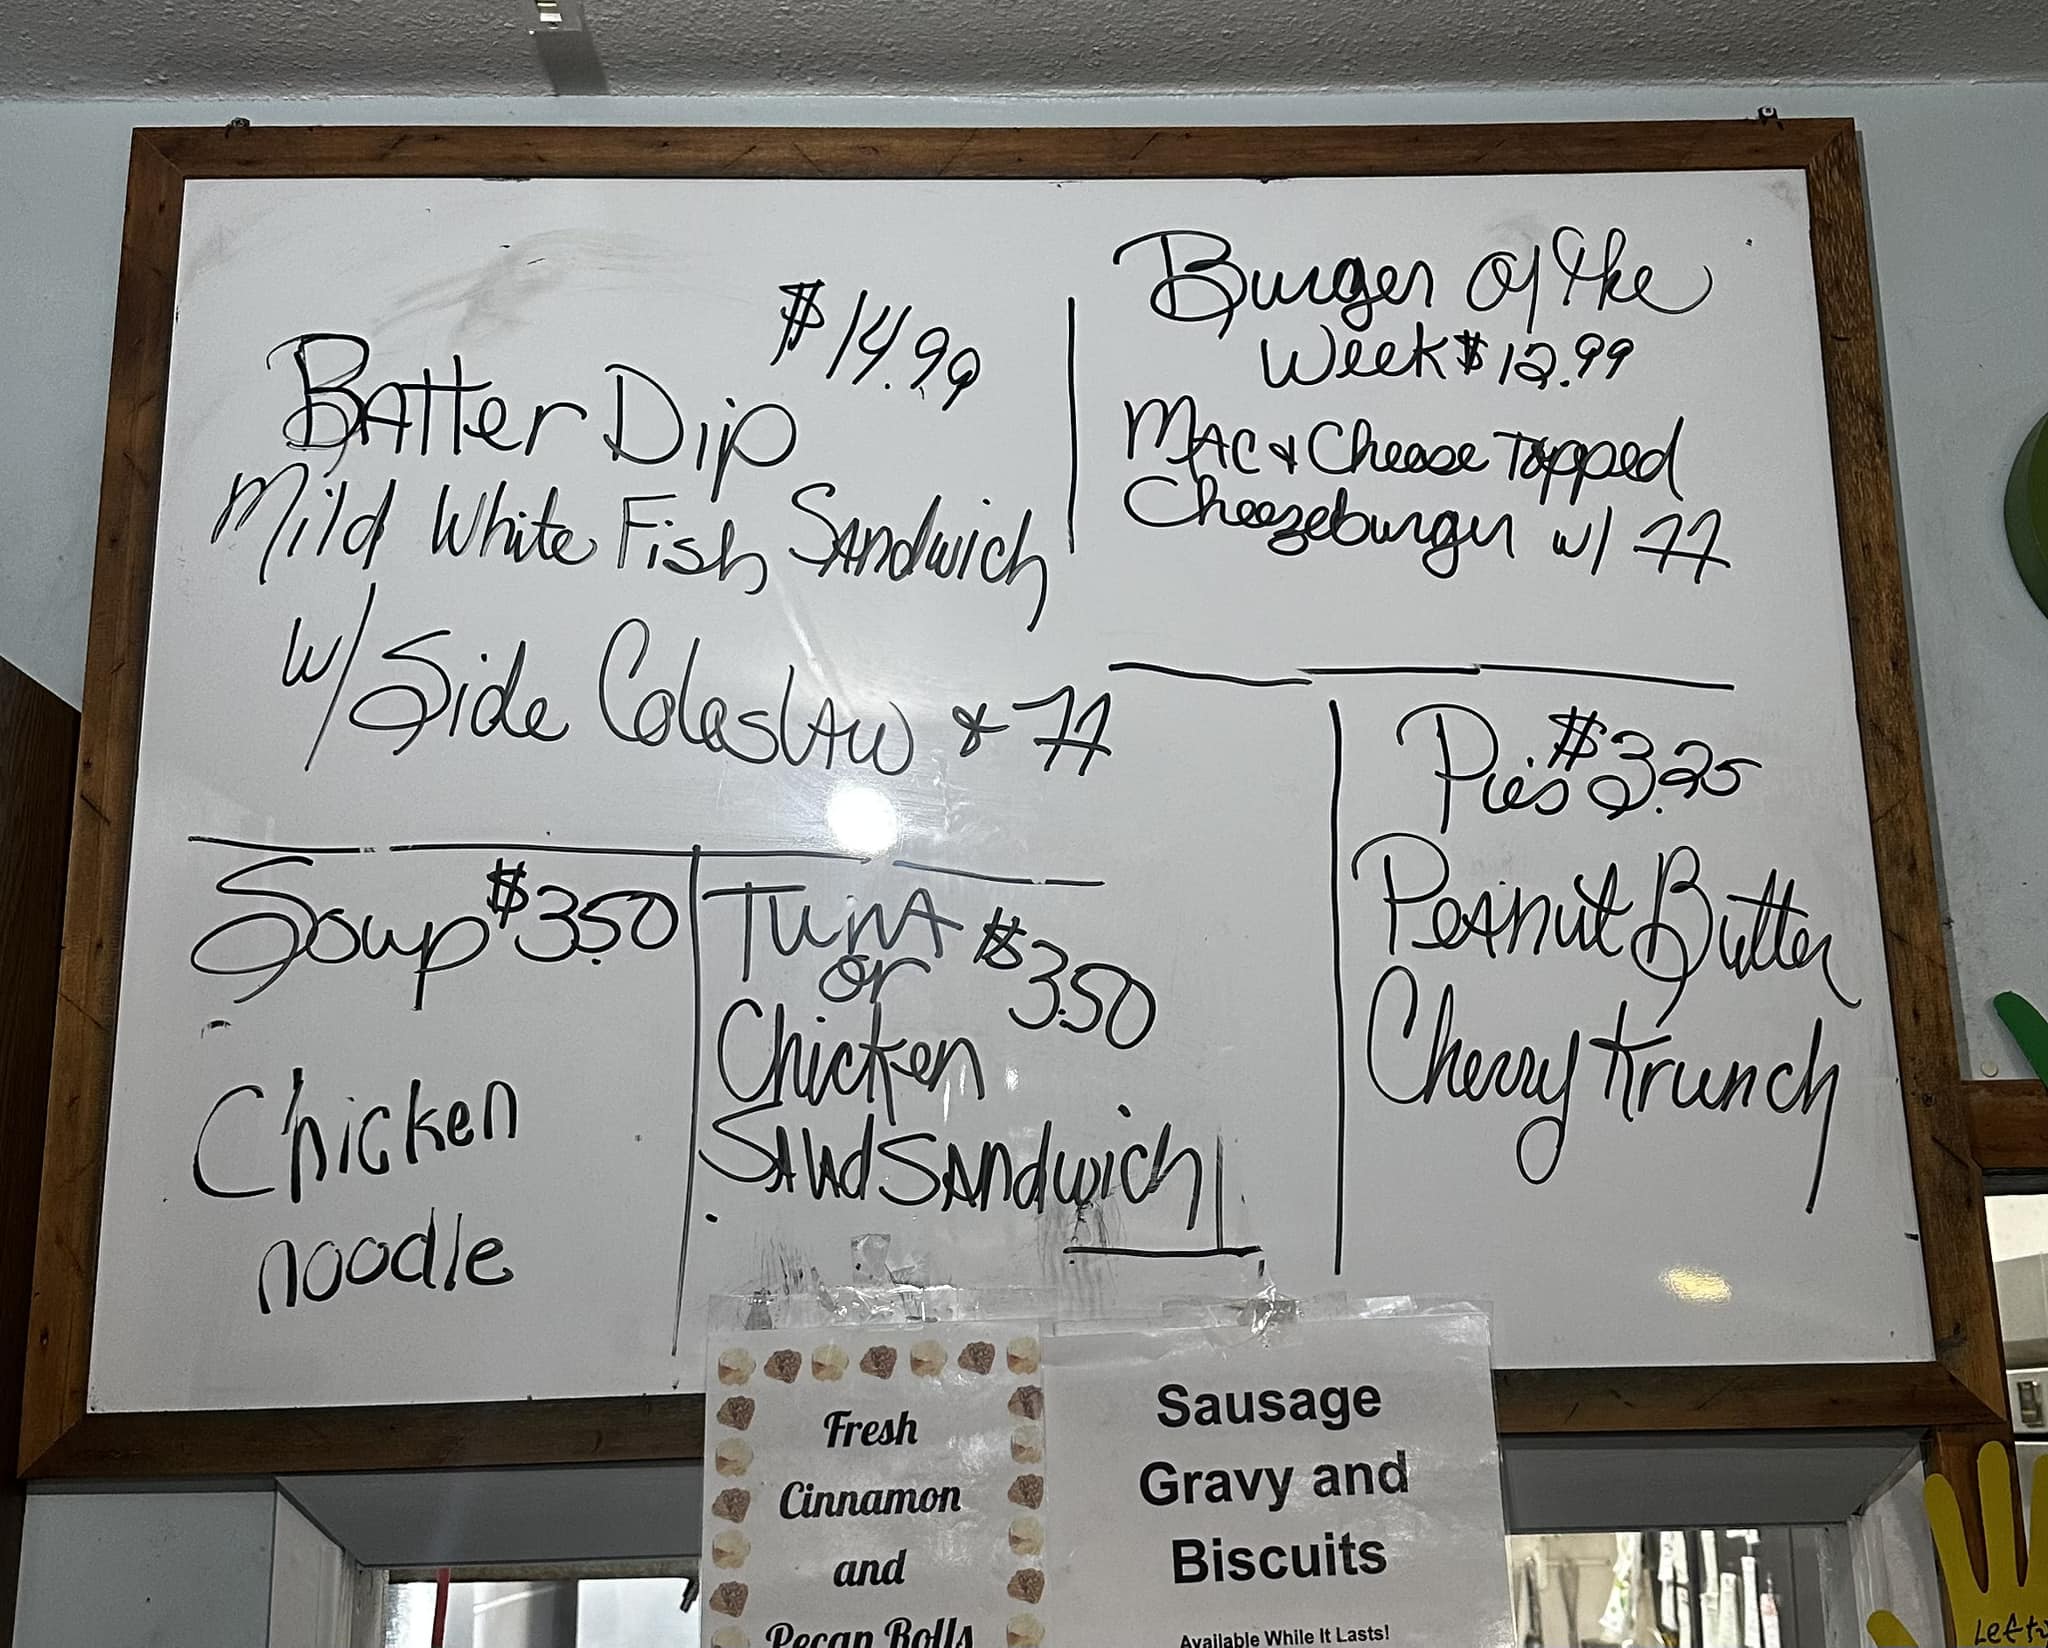 $14.99
Batter Dip
Mild White Fish Sandwich
w/ Side Coleslaw & FF
Burger of the
Week $12.99
Mac & Cheese Topped
Cheezeburger w/ FF
Soup $3.50
Chicken
noodle
Tuna $3.50
or
Chicken
Salad Sandwich
Pies $3.25
Peanut Butter
Cherry Krunch
Fresh
Cinnamon
and
Pecan Rolls
Sausage
Gravy and
Biscuits
Available While It Lasts!